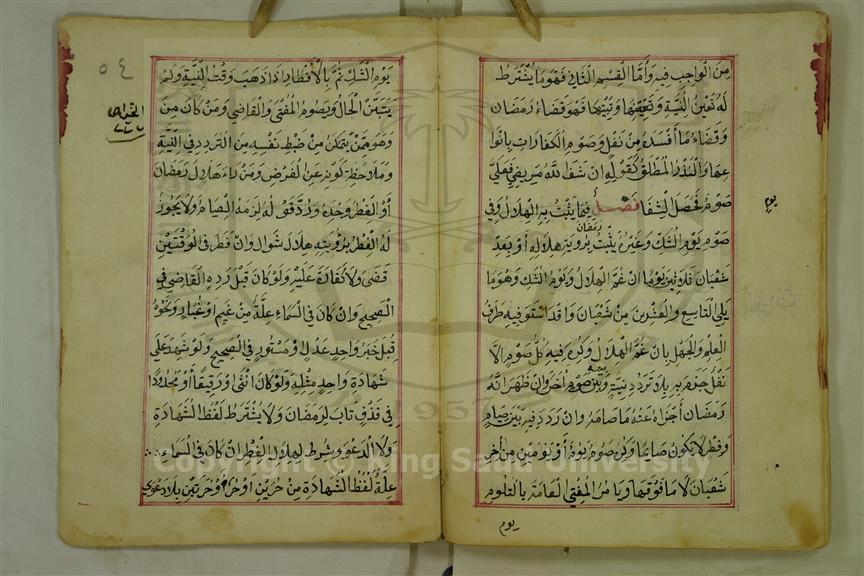 من الواجب فيه وأما القسم الثاني فهو ما يشترط
له تعيين النية وتعقبها وتبيتها فهو قضاء رمضان
وقضاء ما أفسده من نفل وصوم الكفارات بأنوا
عها والنذر المطلق كقوله ان شفا الله مريضي فعلي
صوم فحصل الشفا فصل فيما يثبت به الهلال وفي
صوم يوم الشك وغيره يثبت رمضان برؤية هلاله أو بعد
شعبان ثلاثين يوما ان غم الهلال ويوم الشك وهو ما
يلي التاسع والعشرين من شعبان وقد استوفيه طرف
العلم والجهل بان غم الهلال وكره فيه كل صوم الا
نفل جزم به بلا ترديد نية بينه وبين صوم اخر وان ظهر انه
رمضان أجزاه عنه ما صامه وان ردد فيه بين صيام
وفطر لا يكون صايما وكره صوم يوم أو يومين من اخر
شعبان لا ما فوقها ويامر المفتي العامة بالتلوم
يوم
يوم
٥٤
يوم الشك ثم بالأفطار اذا ذهب وقت النية ولم
يتبين الحال ويصوم المفتى والقاضي ومن كان من
وهو ممن يتمكن من ضبط نفسه من التردد في النية
وملاحظة كونه عن الفرض ومن راء هلال رمضان
أو الفطر وحده ورد قوله لزمه الصيام ولا يجوز
له الفطر برؤيته هلال شوال وان فطر في الوقتين
قضى ولا كفارة عليه ولو كان قبل رده القاضي في
الصحيح وان كان في السماء علة من غيم او غبار ونحوه
قبل خبر واحد عدل او مستور في الصحيح ولو شهد على
شهادة واحد مثله ولو كان انثى او رقيقا أو محدودا
في قذف تاب لرمضان ولا يشترط لفظ الشهادة
ولا الدعوى وشرط لهلال الفطر ان كان في السماء
علة لفظ الشهادة من حرين او حر وحرتين بلا دعوى
Copyright © King Saud University
1957